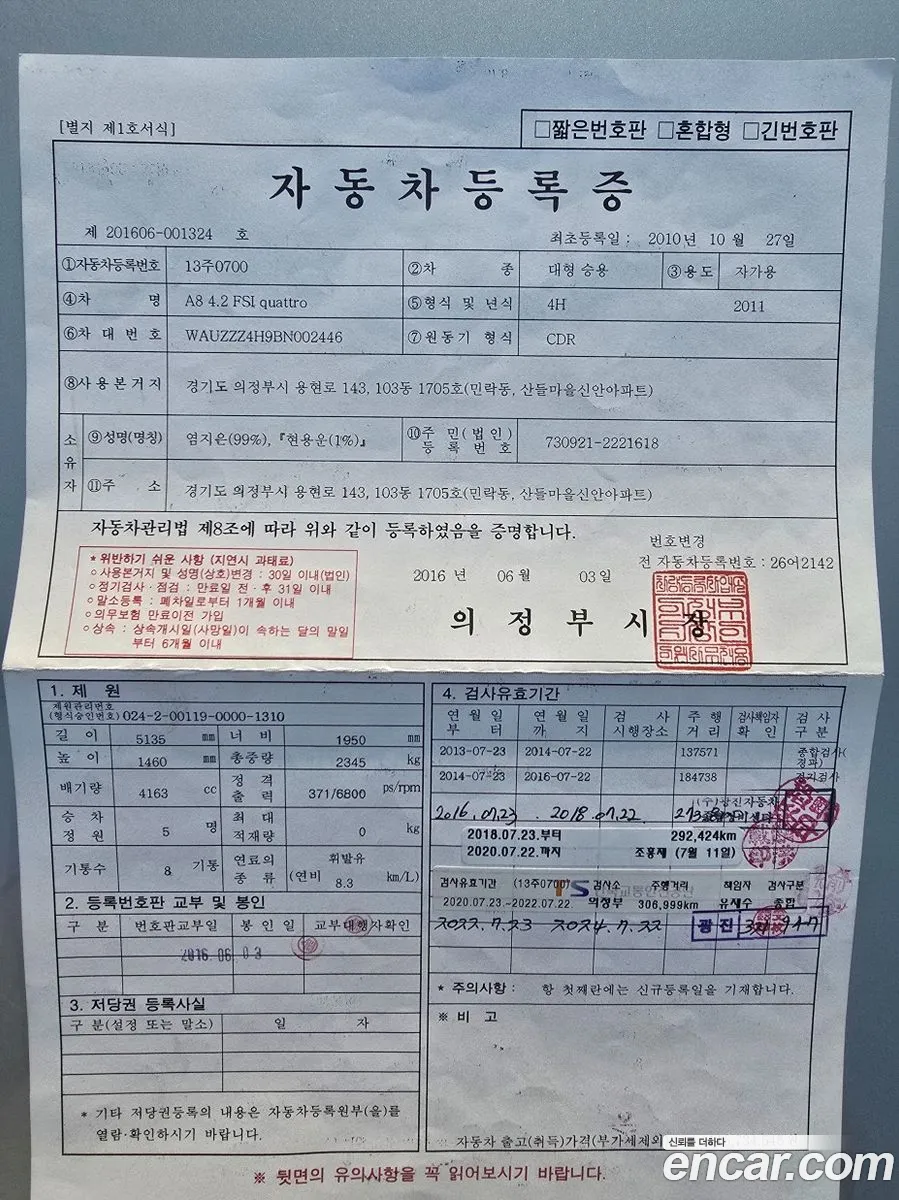 [별지 제1호서식]
□짧은번호판 □혼합형 □긴번호판
자동차등록증
제 201606-001324 호
최초등록일 : 2010년 10월 27일
①자동차등록번호 13주0700 ②차 종 대형 승용 ③용도 자가용
④차 명 A8 4.2 FSI quattro ⑤형식 및 년식 4H 2011
⑥차대번호 WAUZZZ4H9BN002446 ⑦원동기 형식 CDR
⑧사용본거지 경기도 의정부시 용현로 143, 103동 1705호(민락동, 산들마을신안아파트)
소유자
⑨성명(명칭) 염지은(99%), 『현용운(1%)』 ⑩주민(법인)등록번호 730921-2221618
⑪주 소 경기도 의정부시 용현로 143, 103동 1705호(민락동, 산들마을신안아파트)
자동차관리법 제8조에 따라 위와 같이 등록하였음을 증명합니다.
번호변경
전 자동차등록번호 : 26어2142
2016 년 06 월 03 일
의정부시장
* 위반하기 쉬운 사항 (지연시 과태료)
○ 사용본거지 및 성명(상호)변경 : 30일 이내(법인)
○ 정기검사 · 점검 : 만료일 전 · 후 31일 이내
○ 말소등록 : 폐차일로부터 1개월 이내
○ 의무보험 만료이전 가입
○ 상속 : 상속개시일(사망일)이 속하는 달의 말일
부터 6개월 이내
1. 제 원
제원관리번호
(형식승인번호) 024-2-00119-0000-1310
길 이 5135 ㎜ 너 비 1950 ㎜
높 이 1460 ㎜ 총중량 2345 kg
배기량 4163 cc 정격출력 371/6800 ps/rpm
승차정원 5 명 최대적재량 0 kg
기통수 8 기통 연료의종류 휘발유 (연비 8.3 km/L)
2. 등록번호판 교부 및 봉인
구 분 번호판교부일 봉인일 교부대행자확인
3. 저당권 등록사실
구분(설정 또는 말소) 일 자
* 기타 저당권등록의 내용은 자동차등록원부(을)를
열람·확인하시기 바랍니다.
4. 검사유효기간
연월일부터 연월일까지 검사시행장소 주행거리 검사책임자확인 검사구분
2013-07-23 2014-07-22 137571 종합검사(
2014-07-23 2016-07-22 184738
2016.07.23 2018.07.22
2018.07.23.부터 292,424km
2020.07.22.까지 조홍제 (7월 11일)
검사유효기간 (13주0700) 검사소 주행거리 책임자 검사구분
2020.07.23~2022.07.22. 의정부 306,999km 유재수 종합
2022.7.23 2024.7.22 광진
* 주의사항 : 항 첫째란에는 신규등록일을 기재합니다.
※ 비 고
자동차 출고(취득)가격(부가세제외
신뢰를 더하다
encar.com
※ 뒷면의 유의사항을 꼭 읽어보시기 바랍니다.